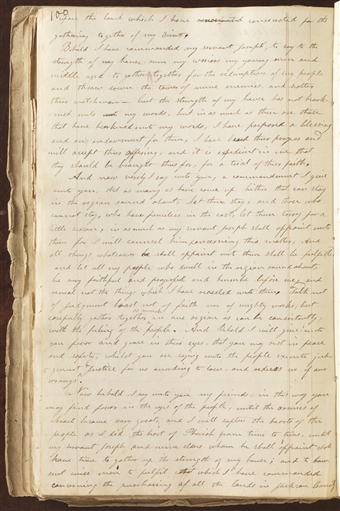 100
upon the land which I have consecrated for the
gathering together of my Saints,
Behold I have commanded my servant Joseph, to say to the
strength of my house, even my warriors my young men and
middle aged to gather together for the redemption of my people
and throw down the towers of mine enemies, and scatter
their watchmen — but the strength of my house has not heark-
ened unto my words, but in as much as there are those
that have hearkened unto my words, I have prepared a blessing
and an endowment for them, I have heard their prayers and
will accept their offering, and it is expedient in me that
they should be brought thus far, for a trial of their faith.
And now verily I say unto you, a commandment I give
unto you, that as many as have come up hither that can stay
in the region round about, let them stay, and those who
cannot stay, who have families in the east, let them tarry for a
little season, in as much as my servant Joseph shall appoint unto
them for I will counsel him concerning this matter, And
all things whatsoever he shall appoint unto them shall be fulfilled
and let all my people who dwell in the region round about,
be very faithful and prayerful and humble before me, and
reveal not the things which I have revealed unto them, Talk not
of judgement boast not of faith nor of mighty works, but
carefully gather together in one region as can be consistently
with the feelings of the people. And Behold I will give unto
you favor and grace in their eyes, that you may rest in peace
and safety, whilst you are saying unto the people execute judg-
ement Justice for us according to law, and redress us of our
wrongs.
Now behold I say unto you my friends, in this way you
may find favor in the eyes of the people, until the armies of
Israel become very great, and I will soften the hearts of the
people as I did the heart of Pharaoh from time to time, until
my servant Joseph and mine elders whom he shall appoint shall
have time to gather up the strength of my house, and to have
sent wise men to fulfil that which I have commanded
concerning the purchasing of all the lands in Jackson County